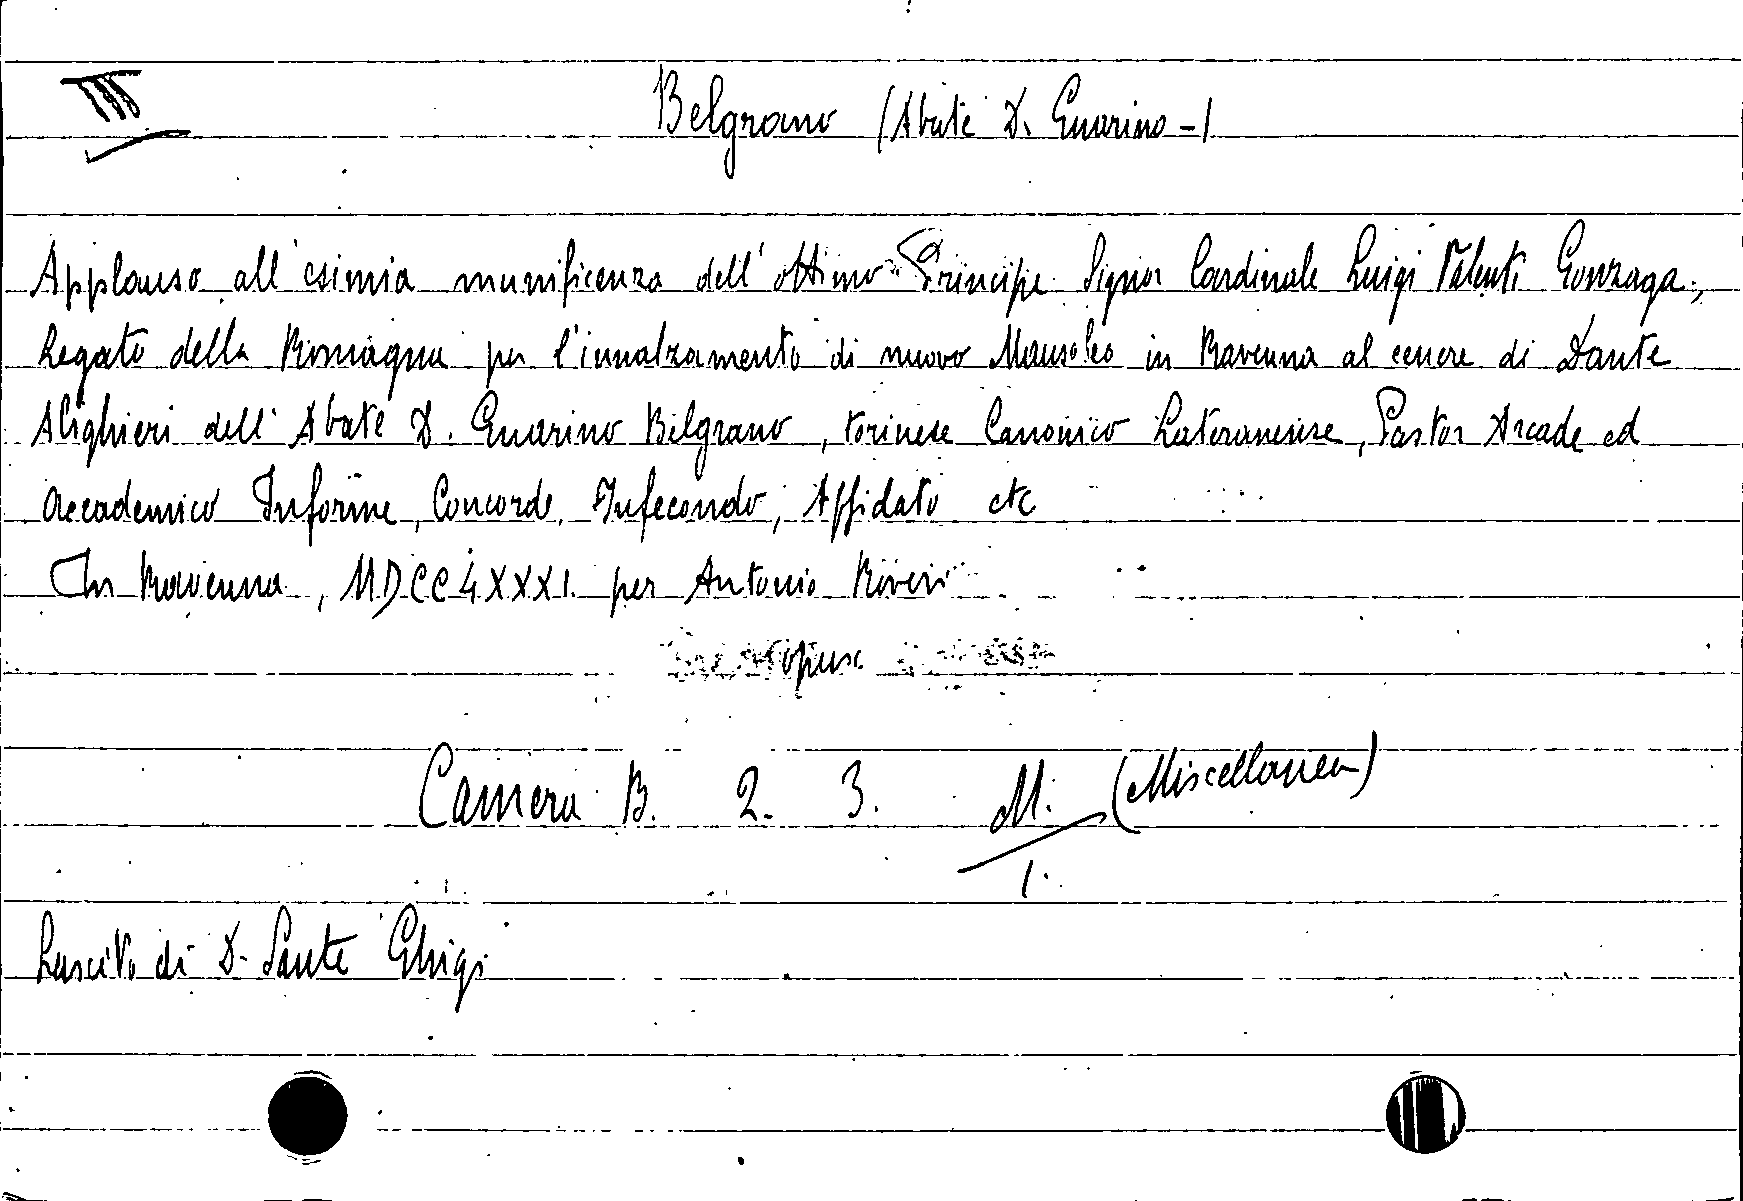 Belgrano (Abate D. Guarino-)
Applauso all'esimia munificenza dell'ottimo Principe Signor Cardinale Luigi Valenti Gonzaga,
Legato della Romagna per l'innalzamento di nuovo Mausoleo in Ravenna al cenere di Dante
Alighieri dell'Abate D. Guarino Belgrano, torinese Canonico Lateranense, Pastor Arcade ed
Accademico Informe, Concorde, Infecondo, Affidato etc
In Ravenna, MDCCLXXXI. per Antonio Roveri
opusc
Camera B. 2. 3. M. (Miscellanea)
1.
Lascito di D. Sante Ghigi